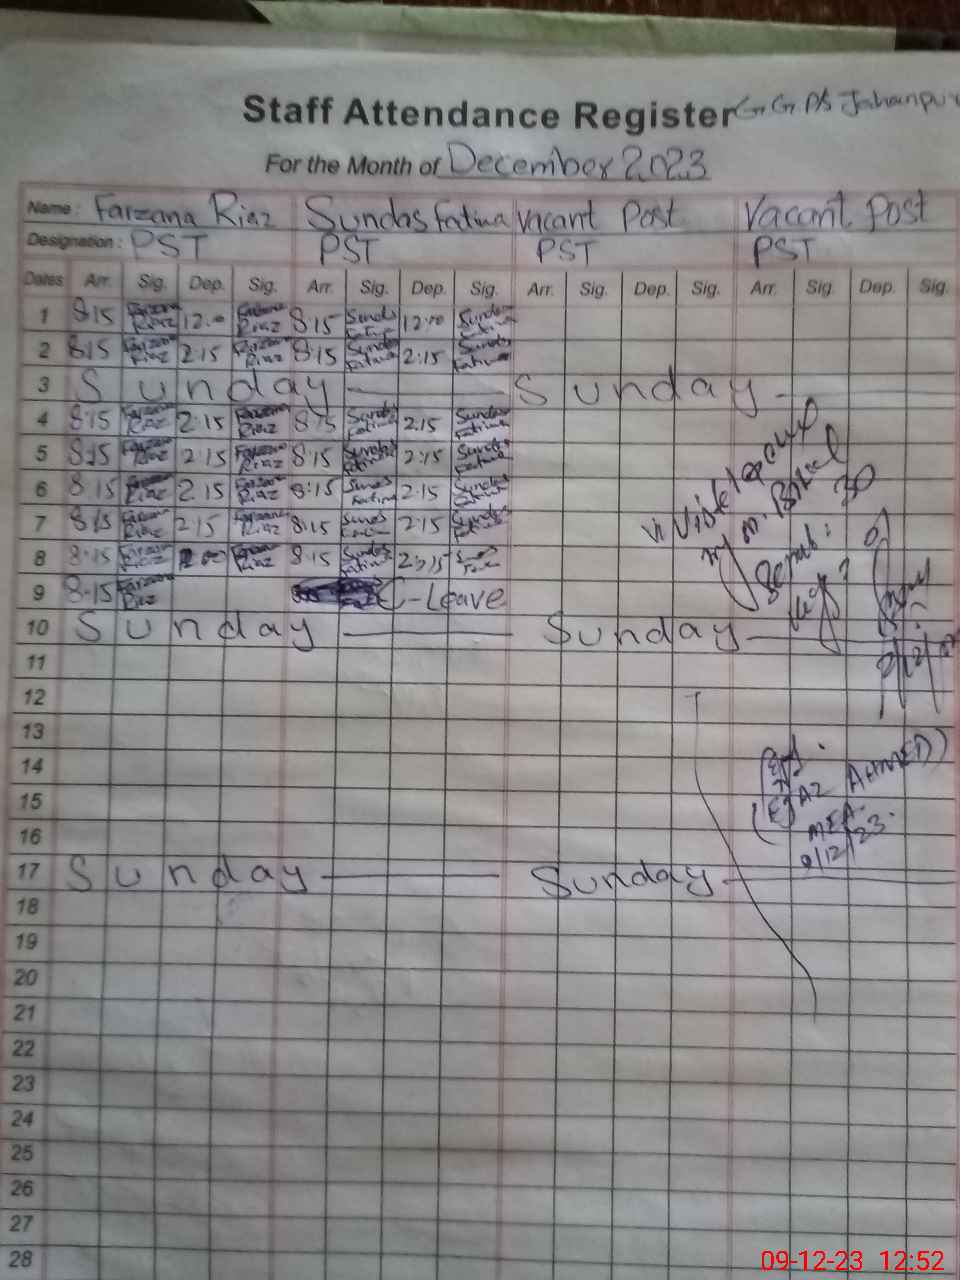 Staff Attendance Register G.G.P/S Jahanpur
For the Month of December 2023
Name : Farzana Riaz Sundas Fatima Vacant Post Vacant Post
Designation : PST PST PST PST
Dates Arr. Sig. Dep. Sig. Arr. Sig. Dep. Sig. Arr. Sig. Dep. Sig. Arr. Sig. Dep. Sig.
1 8:15 Farzana Riaz 12:00 Farzana Riaz 8:15 Sundas Fatima 12:00 Sundas Fatima
2 8:15 Farzana Riaz 2:15 Farzana Riaz 8:15 Sundas Fatima 2:15 Sundas Fatima
3 Sunday Sunday
4 8:15 Farzana Riaz 2:15 Farzana Riaz 8:15 Sundas Fatima 2:15 Sundas Fatima
5 8:15 Farzana Riaz 2:15 Farzana Riaz 8:15 Sundas Fatima 2:15 Sundas Fatima
6 8:15 Farzana Riaz 2:15 Farzana Riaz 8:15 Sundas Fatima 2:15 Sundas Fatima
7 8:15 Farzana Riaz 2:15 Farzana Riaz 8:15 Sundas Fatima 2:15 Sundas Fatima
8 8:15 Farzana Riaz Farzana Riaz 8:15 Sundas Fatima 2:15
9 8:15 Farzana Riaz C-Leave
10 Sunday Sunday
30
11
12
13
14
(EJAZ AHMED)
15
MEA
16
9/12/23
17 Sunday Sunday
18
19
20
21
22
23
24
25
26
27
28
09-12-23 12:52